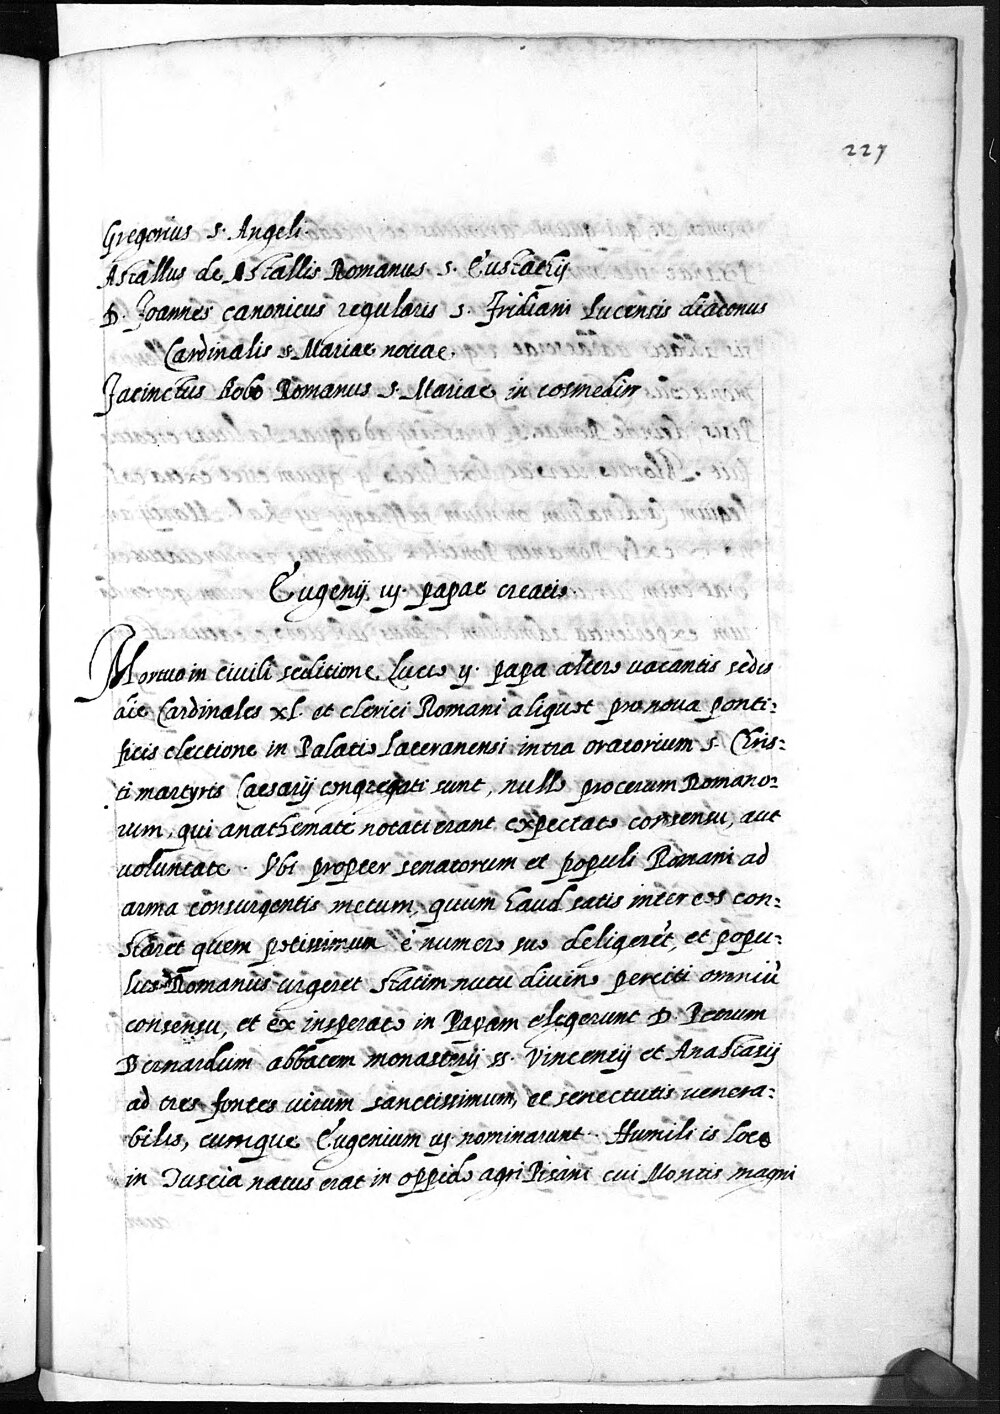 227
Gregorius s. Angeli
Astallus de Astallis Romanus s. Eustachij
D. Joannes canonicus regularis s. Fridiani Lucensis diaconus
Cardinalis s. Mariae novae.
Jacinctus Bobo Romanus s. Mariae in cosmedin
Eugenij iij. papae creatio.
Mortuo in civili seditione Lucio ij. papa altero vacantis sedis
die Cardinales xl. et clerici Romani aliquot pro nova ponti-
ficis electione in Palatio Lateranensi intra oratorium s. Chris-
ti martyris Caesarij congregati sunt, nullo procerum Romano-
rum, qui anathemate notati erant expectato consensu, aut
voluntate. Ubi propter senatorum et populi Romani ad
arma consurgentis metum, quum haud satis inter eos con-
staret quem potissimum è numero suo deligerēt, et popu-
lus Romanus urgeret statim nutu divino perciti omniū
consensu, et ex insperato in Papam elegerunt D. Petrum
Bernardum abbatem monasterij ss. Vincentij et Anastasij
ad tres fontes virum sanctissimum, et senectutis venera-
bilis, eumque Eugenium iij nominarunt. Humili is loco
in Tuscia natus erat in oppido agri Pisani cui Montis magni